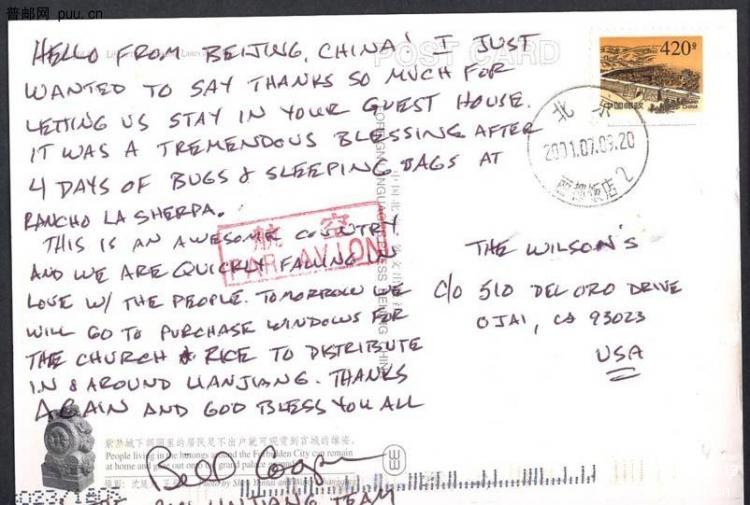 普邮网 puu.cn
POST CARD
HELLO FROM BEIJING, CHINA! I JUST
WANTED TO SAY THANKS SO MUCH FOR
LETTING US STAY IN YOUR GUEST HOUSE.
IT WAS A TREMENDOUS BLESSING AFTER
4 DAYS OF BUGS & SLEEPING BAGS AT
RANCHO LA SHERPA.
THIS IS AN AWESOME COUNTRY
AND WE ARE QUICKLY FALLING IN
LOVE W/ THE PEOPLE. TOMORROW WE
WILL GO TO PURCHASE WINDOWS FOR
THE CHURCH & RICE TO DISTRIBUTE
IN & AROUND LIANJIANG. THANKS
AGAIN AND GOD BLESS YOU ALL
Bill
TEAM
航空
PAR AVION
420分
中国邮政
CHINA
北京
2001.07.09.20
饭店 2
THE WILSON'S
C/O 510 DEL ORO DRIVE
OJAI, CA 93023
USA
紫禁城下胡同里的居民足不出户就可观赏到宫城的雄姿。
People living in the hutongs around the Forbidden City can remain
at home and the grand palace